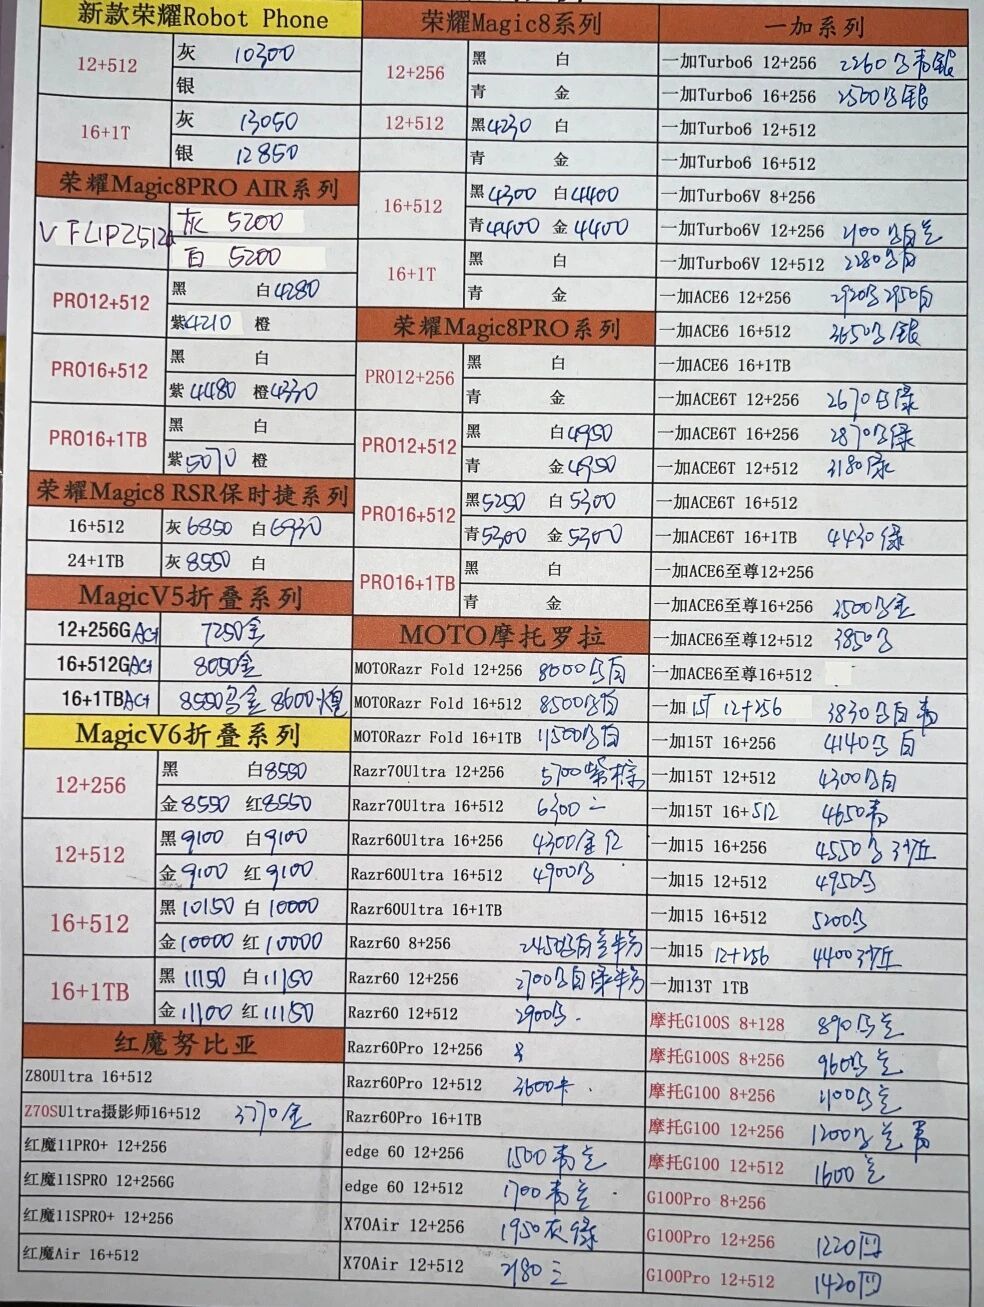 新款荣耀Robot Phone
12+512
灰 10300
银
16+1T
灰 13050
银 12850
荣耀Magic8PRO AIR系列
V FLIP2512a
灰 5200
百 5200
PRO12+512
黑 白4280
紫4210 橙
PRO16+512
黑 白
紫4480 橙4330
PRO16+1TB
黑 白
紫5070 橙
荣耀Magic8 RSR保时捷系列
16+512 灰6850 白6930
24+1TB 灰8550 白
MagicV5折叠系列
12+256G 7250金
16+512G 8050金
16+1TB 8550 金 8600
MagicV6折叠系列
12+256
黑 白8550
金8550 红8550
12+512
黑9100 白9100
金9100 红9100
16+512
黑10150 白10000
金10000 红10000
16+1TB
黑11150 白11150
金11100 红11150
红魔努比亚
Z80Ultra 16+512
Z70SUltra摄影师16+512 3770金
红魔11PRO+ 12+256
红魔11SPRO 12+256G
红魔11SPRO+ 12+256
红魔Air 16+512
荣耀Magic8系列
12+256
黑 白
青 金
12+512
黑4230 白
青 金
16+512
黑4300 白4400
青4400 金4400
16+1T
黑 白
青 金
荣耀Magic8PRO系列
PRO12+256
黑 白
青 金
PRO12+512
黑 白4950
青 金4950
PRO16+512
黑5250 白5300
青5300 金5300
PRO16+1TB
黑 白
青 金
MOTO摩托罗拉
MOTORazr Fold 12+256 8000
MOTORazr Fold 16+512 8500
MOTORazr Fold 16+1TB 11500
Razr70Ultra 12+256 5700紫棕
Razr70Ultra 16+512 6300
Razr60Ultra 16+256 4300金
Razr60Ultra 16+512 4900
Razr60Ultra 16+1TB
Razr60 8+256 2450
Razr60 12+256 2700
Razr60 12+512 2900
Razr60Pro 12+256
Razr60Pro 12+512 3600卡
Razr60Pro 16+1TB
edge 60 12+256 1500青
edge 60 12+512 1700青
X70Air 12+256 1950灰绿
X70Air 12+512 2180
一加系列
一加Turbo6 12+256 2260 青银
一加Turbo6 16+256 2500 银
一加Turbo6 12+512
一加Turbo6 16+512
一加Turbo6V 8+256
一加Turbo6V 12+256 2100
一加Turbo6V 12+512 2280
一加ACE6 12+256 2920 2950白
一加ACE6 16+512 3650 银
一加ACE6 16+1TB
一加ACE6T 12+256 2670 绿
一加ACE6T 16+256 2870 绿
一加ACE6T 12+512 3180绿
一加ACE6T 16+512
一加ACE6T 16+1TB 4430绿
一加ACE6至尊12+256
一加ACE6至尊16+256 3500 金
一加ACE6至尊12+512 3850
一加ACE6至尊16+512
一加15T 12+256 3830 白 青
一加15T 16+256 4140 白
一加15T 12+512 4300 白
一加15T 16+512 4650青
一加15 16+256 4550 沙丘
一加15 12+512 4950
一加15 16+512 5200
一加15 12+256 4400沙丘
一加13T 1TB
摩托G100S 8+128 890
摩托G100S 8+256 960
摩托G100 8+256 1100
摩托G100 12+256 1200 青
摩托G100 12+512 1600
G100Pro 8+256
G100Pro 12+256 1220
G100Pro 12+512 1420